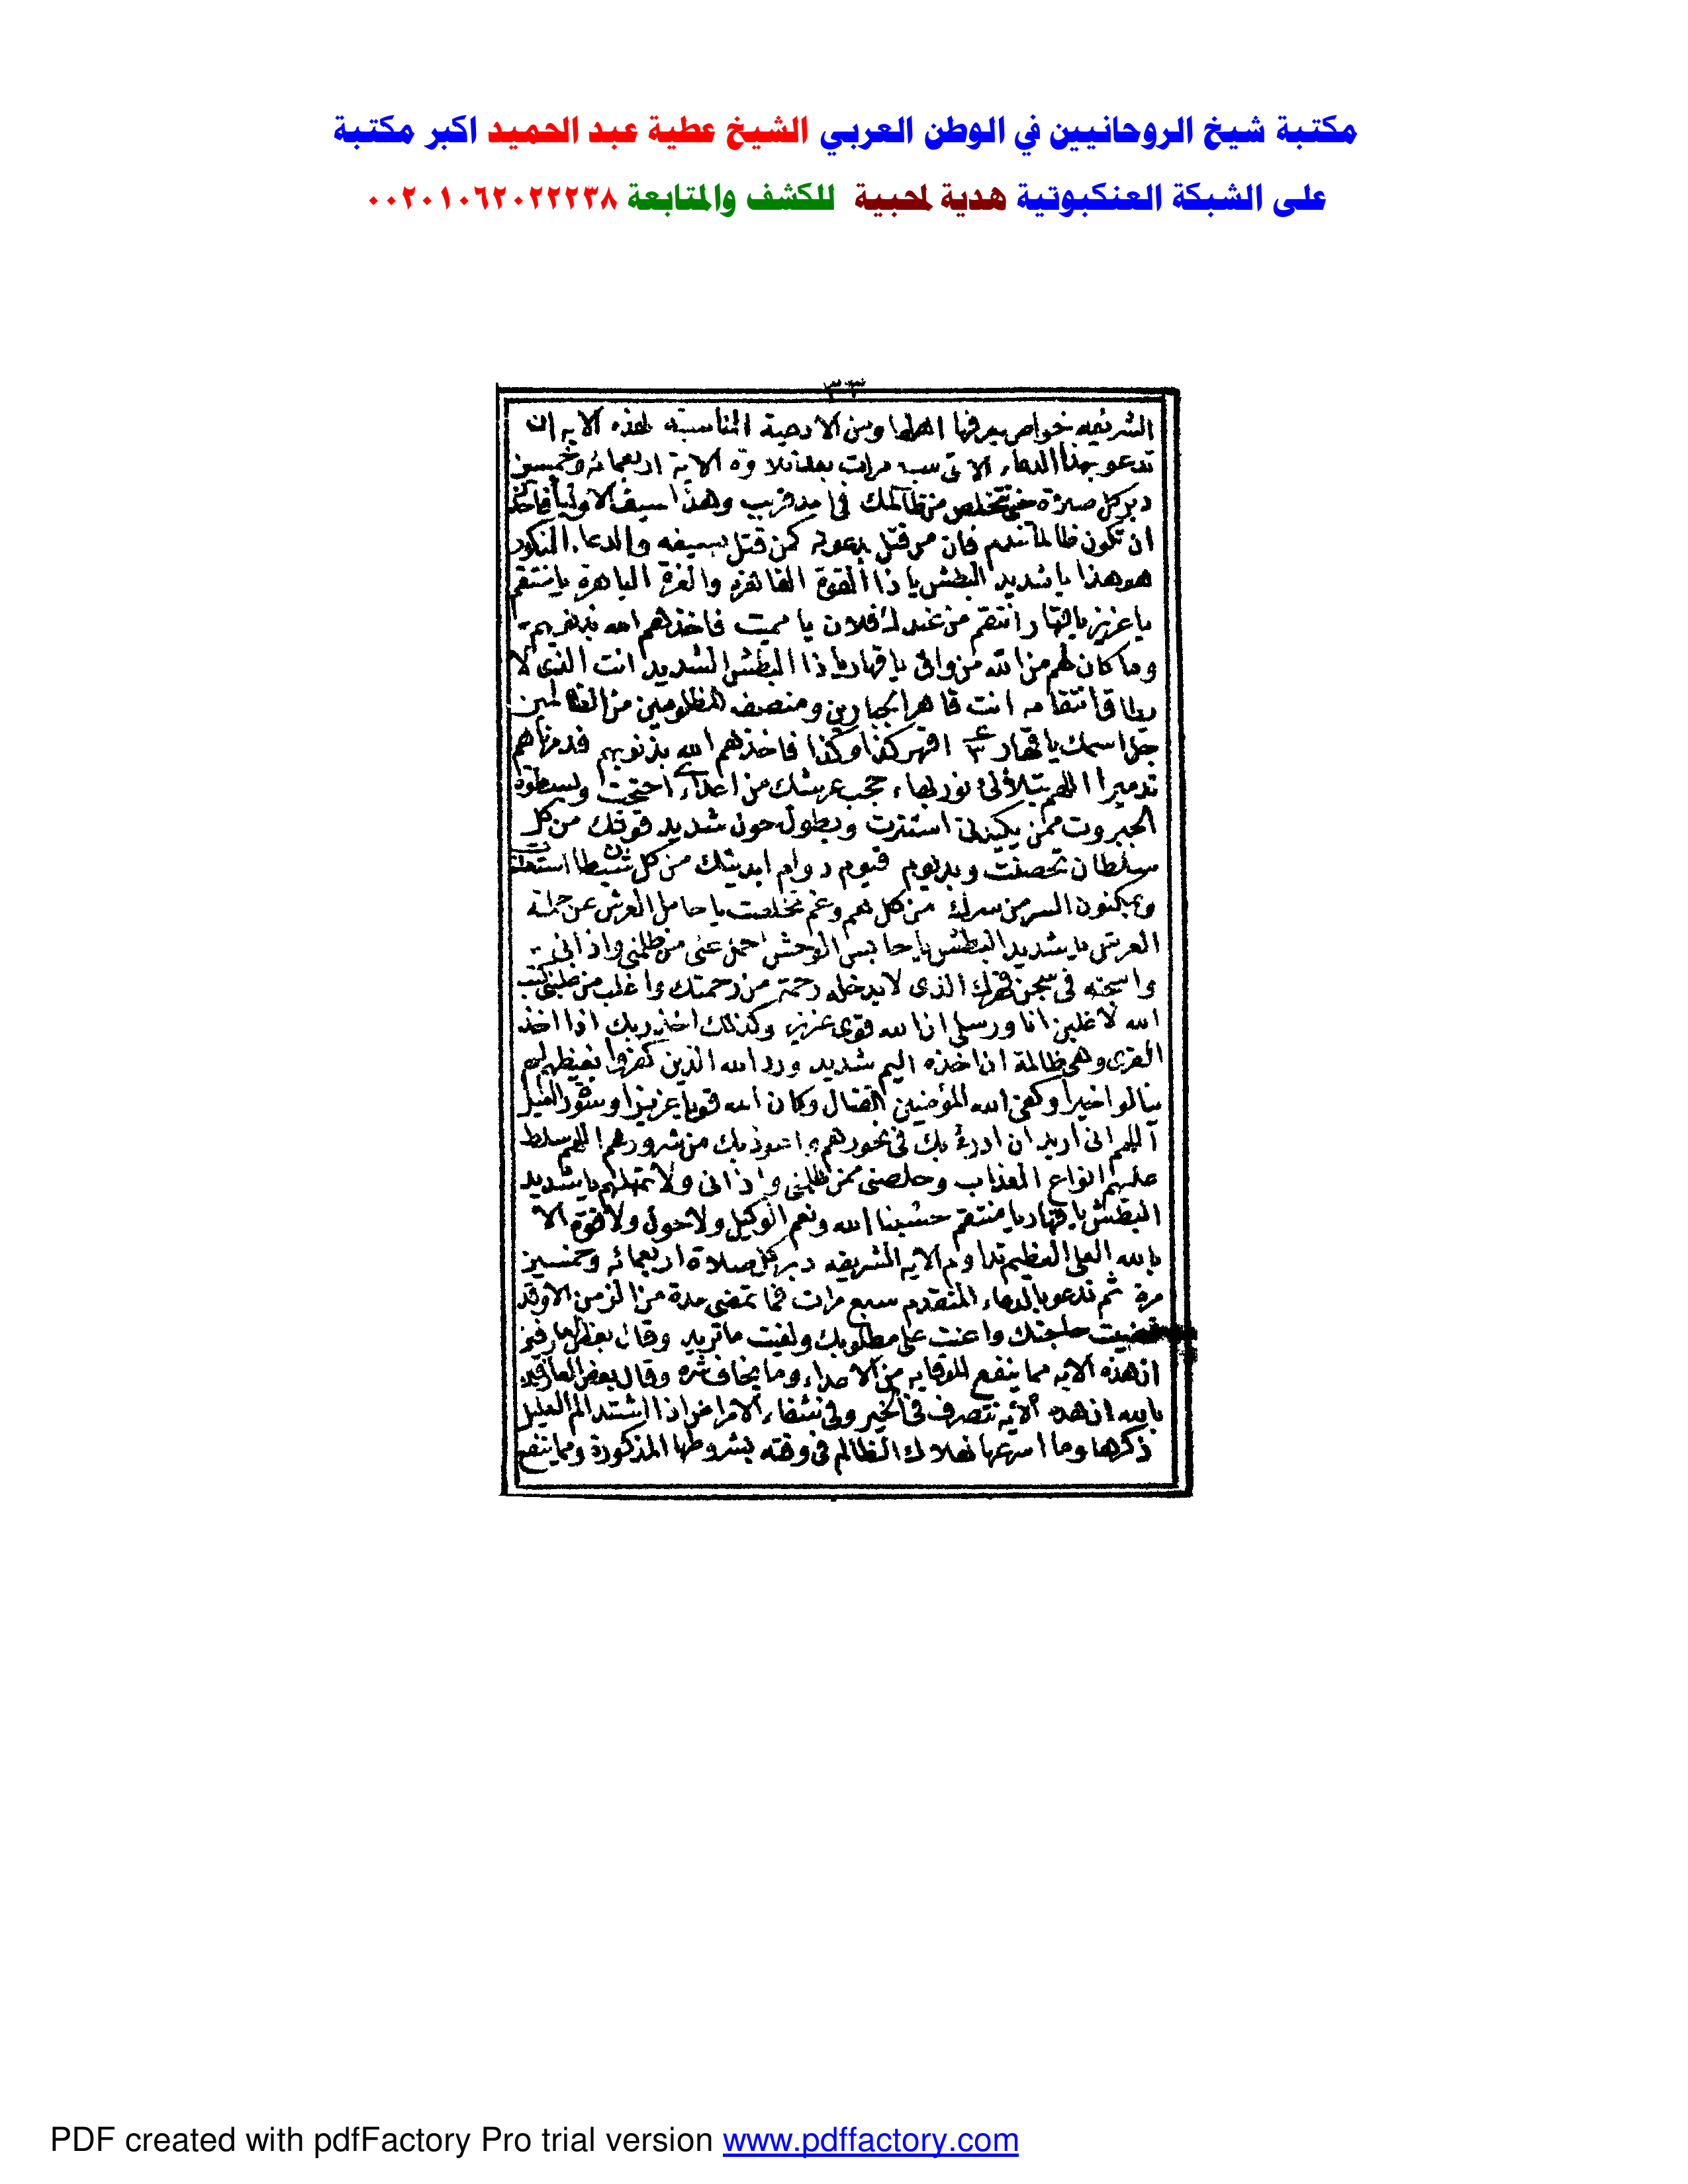 مكتبة شيخ الروحانيين في الوطن العربي الشيخ عطية عبد الحميد اكبر مكتبة
على الشبكة العنكبوتية هدية لمحبية للكشف والمتابعة ٠٠٢٠١٠٦٢٠٢٢٢٣٨
٣٣
الشريفه خواص يعرفها اهلها ومن الادعية المناسبة لهذه الايه ان
تدعو بهذا الدعاء الاتى سبع مرات بعد تلاوة الاية اربعمائه وخمسين
دبر كل صلاة حتى تتخلص من ظالمك فى امد قريب وهذا سيف الاولياء فاحذر
ان تكون ظالما تندم فان من قتل بدعوته كمن قتل بسيفه والدعاء المذكور
هو هذا يا شديد البطش يا ذا القوة القاهرة والعزة الباهرة يا منتقم
يا عزيز يا قهار انتقم من عبدك فلان يا مميت فاخذهم الله بذنوبهم
وما كان لهم من الله من واق يا قهار يا ذا البطش الشديد انت الذى لا
يطاق انتقامه انت قاهر الجبارين ومنصف المظلومين من الظالمين
جل اسمك يا قهار ٣ اقهر كذا وكذا فاخذهم الله بذنوبهم فدمرناهم
تدميرا اللهم بتلألئ نور بهاء حجب عرشك من اعدائى احتجبت وبسطوة
الجبروت ممن يكيدنى استترت وبطول حول شديد قوتك من كل
سلطان تحصنت وبديوم قيوم دوام ابديتك من كل شيطان استعذت
وبمكنون السر من سرك من كل هم وغم تخلصت يا حامل العرش عن حملة
العرش يا شديد البطش يا حابس الوحش احبس عنى من ظلمنى واذانى
واسجنه فى سجن قهرك الذى لا يدخله رحمة من رحمتك واغلب من غلبنى كتب
الله لاغلبن انا ورسلى ان الله قوى عزيز وكذلك اخذ ربك اذا اخذ
القرى وهى ظالمة ان اخذه اليم شديد ورد الله الذين كفروا بغيظهم لم
ينالوا خيرا وكفى الله المؤمنين القتال وكان الله قويا عزيزا
اللهم انى اريد ان ادرء بك فى نحورهم واعوذ بك من شرورهم اللهم سلط
عليهم انواع العذاب وخلصنى ممن ظلمنى واذانى ولا تمهلهم يا شديد
البطش يا قهار يا منتقم حسبنا الله ونعم الوكيل ولا حول ولا قوة الا
بالله العلى العظيم تداوم الايه الشريفه دبر كل صلاة اربعمائه وخمسين
مرة ثم تدعو بالدعاء المتقدم سبع مرات فما تمضى مدة من الزمن الا وقد
قضيت حاجتك واعنت على مطلوبك ولقيت ما تريد وقال بعض العارفين
ان هذه الايه مما ينفع للوقايه من الاعداء وما يخاف شره وقال بعض العارفين
بالله ان هذه الايه تتصرف فى الخير وفى شفاء الامراض اذا اشتد الم العليل
ذكرها وما اسرعها لهلاك الظالم فى وقته بشروطها المذكورة ومما ينفع
PDF created with pdfFactory Pro trial version www.pdffactory.com